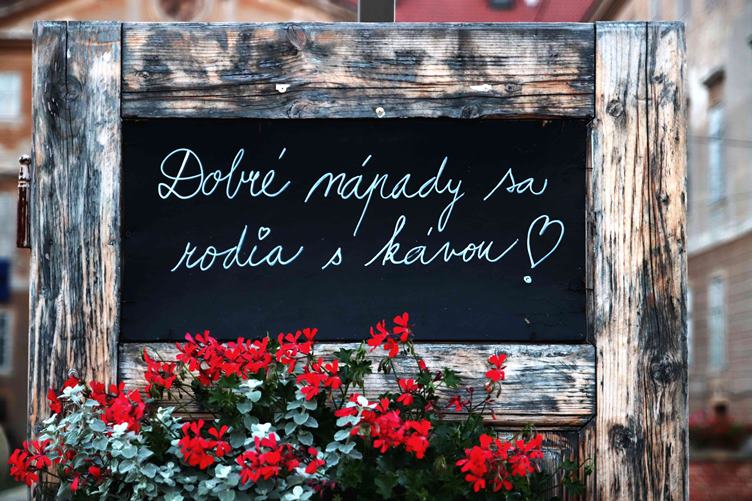 Dobré nápady sa
rodia s kávou!